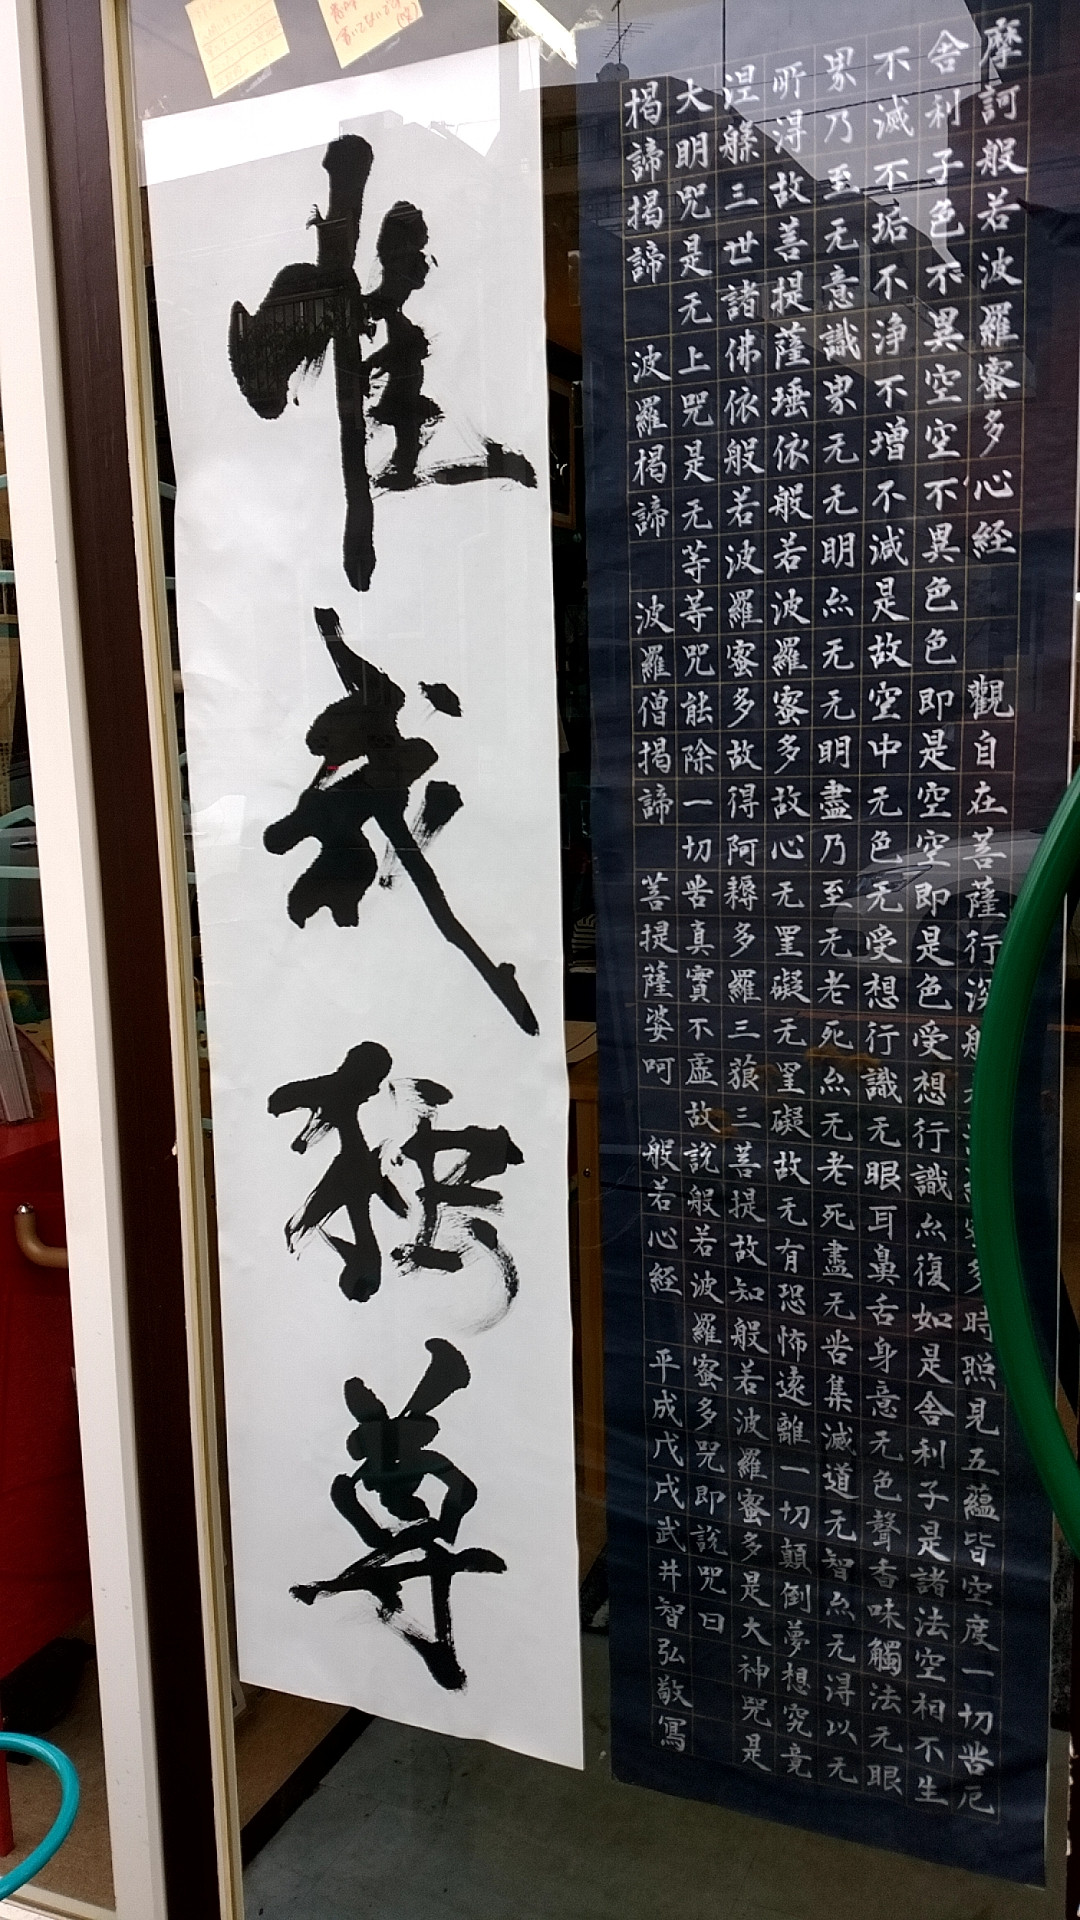 摩訶般若波羅蜜多心経 觀自在菩薩行深多時照見五蘊皆空度一切苦厄
舎利子色不異空空不異色色即是空空即是色受想行識亦復如是舎利子是諸法空相不生
不滅不垢不浄不増不減是故空中无色无受想行識无眼耳鼻舌身意无色聲香味觸法无眼
界乃至无意識界无无明亦无无明盡乃至无老死亦无老死盡无苦集滅道无智亦无得以无
所得故菩提薩埵依般若波羅蜜多故心无罣礙无罣礙故无有恐怖遠離一切顛倒夢想究竟
涅槃三世諸佛依般若波羅蜜多故得阿耨多羅三藐三菩提故知般若波羅蜜多是大神咒是
大明咒是无上咒是无等等咒能除一切苦真實不虚故説般若波羅蜜多咒即説咒曰
揭諦揭諦 波羅揭諦 波羅僧揭諦 菩提薩婆呵 般若心経 平成戊戌武井智弘敬寫
唯我独尊